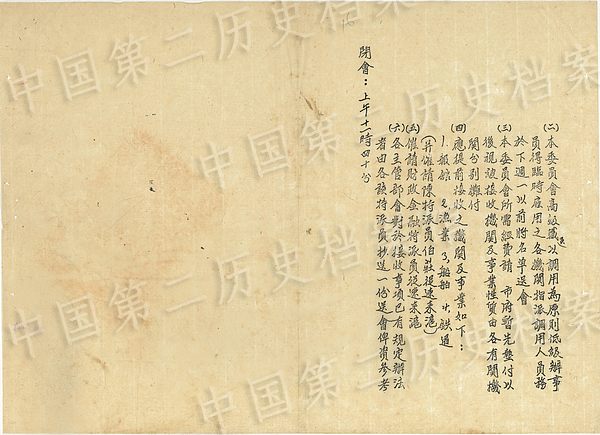 (二)本委員會高級職員以調用為原則低級辦事
員得臨時雇用之各機關指派調用人員務
於下週一以前將名單送會
(三)本委員會所需經費請 市府暫先墊付以
後視被接收機關及事業性質由各有關機
關分別攤付
(四)應提前接收之機關及事業如下:
1.報館 2.漁業 3.船舶 4.鉄道
(并催請陳特派員伯莊從速來滬)
(五)催請財政金融特派員從速來滬
(六)各主管部會對於接收事項已有規定辦法
者由各該特派員抄送一份送會俾資參考
閉會:上午十一時四十分
中国第二历史档案
中国第二历史档案
中国第二历史档案
中国第二历史档案